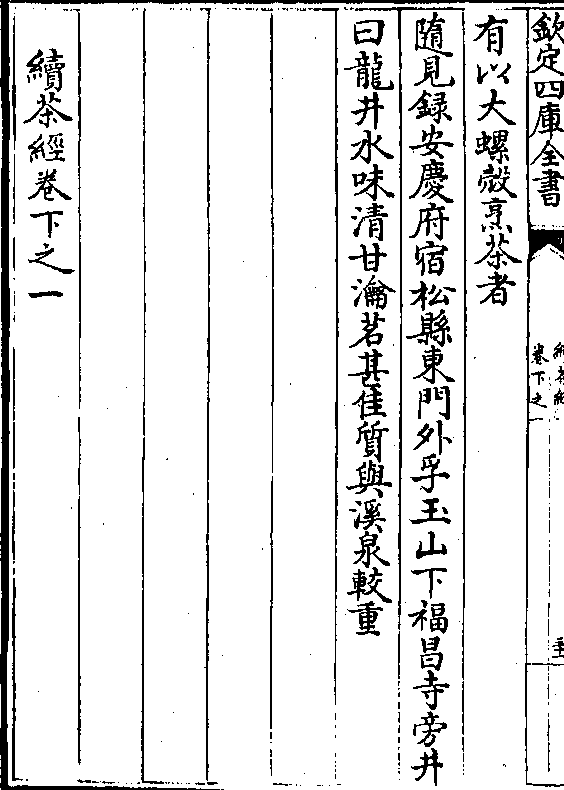 欽定四庫全書
續茶經
卷下之一
有以大螺殼烹茶者
隨見録安慶府宿松縣東門外孚玉山下福昌寺旁井
曰龍井水味清甘瀹茗甚佳質與溪泉較重
續茶經卷下之一